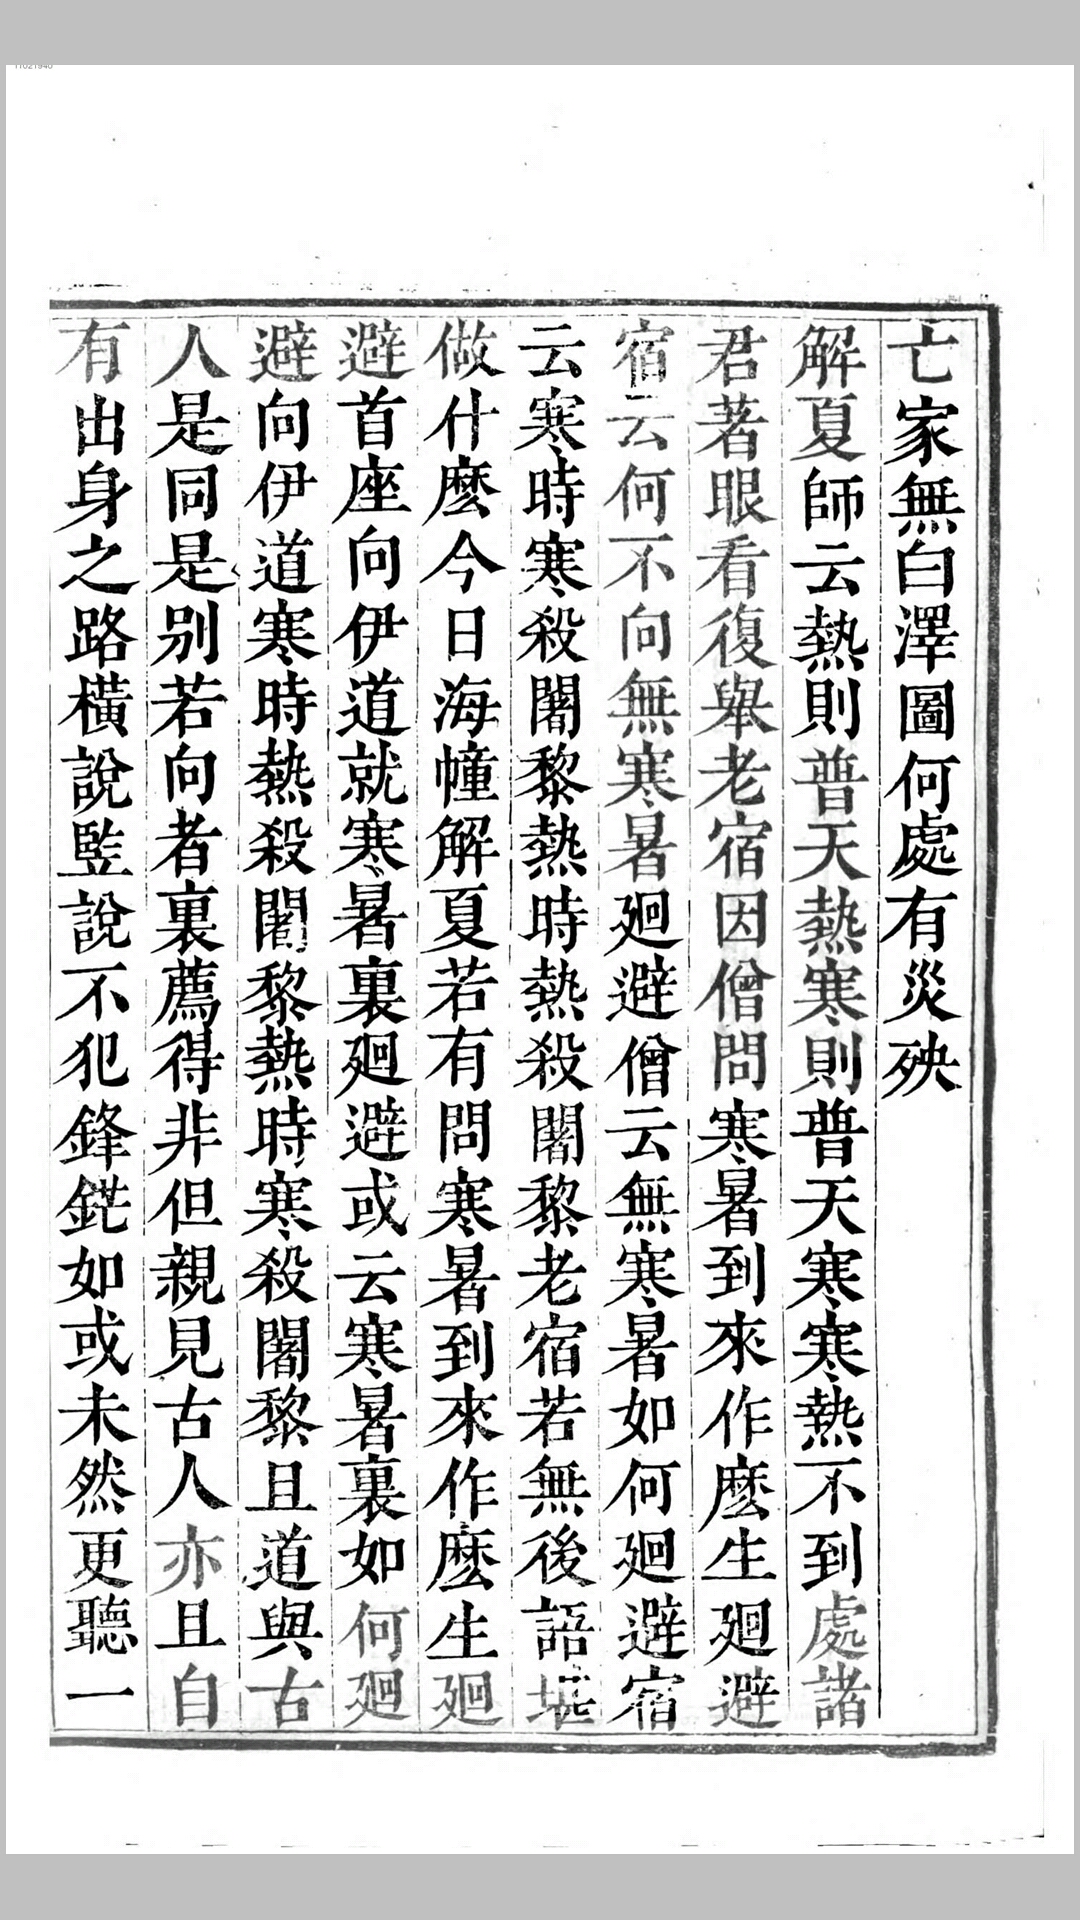 亡家無白澤圖何處有災殃
解夏師云熱則普天熱寒則普天寒寒熱不到處諸
君著眼看復舉老宿因僧問寒暑到來作麽生廻避
宿云何不向無寒暑廻避僧云無寒暑如何廻避宿
云寒時寒殺闍黎熱時熱殺闍黎老宿若無後語堪
做什麽今日海幢解夏若有問寒暑到來作麽生廻
避首座向伊道就寒暑裏廻避或云寒暑裏如何廻
避向伊道寒時熱殺闍黎熱時寒殺闍黎且道與古
人是同是别若向者裏薦得非但親見古人亦且自
有出身之路橫說竪說不犯鋒鋩如或未然更聽一